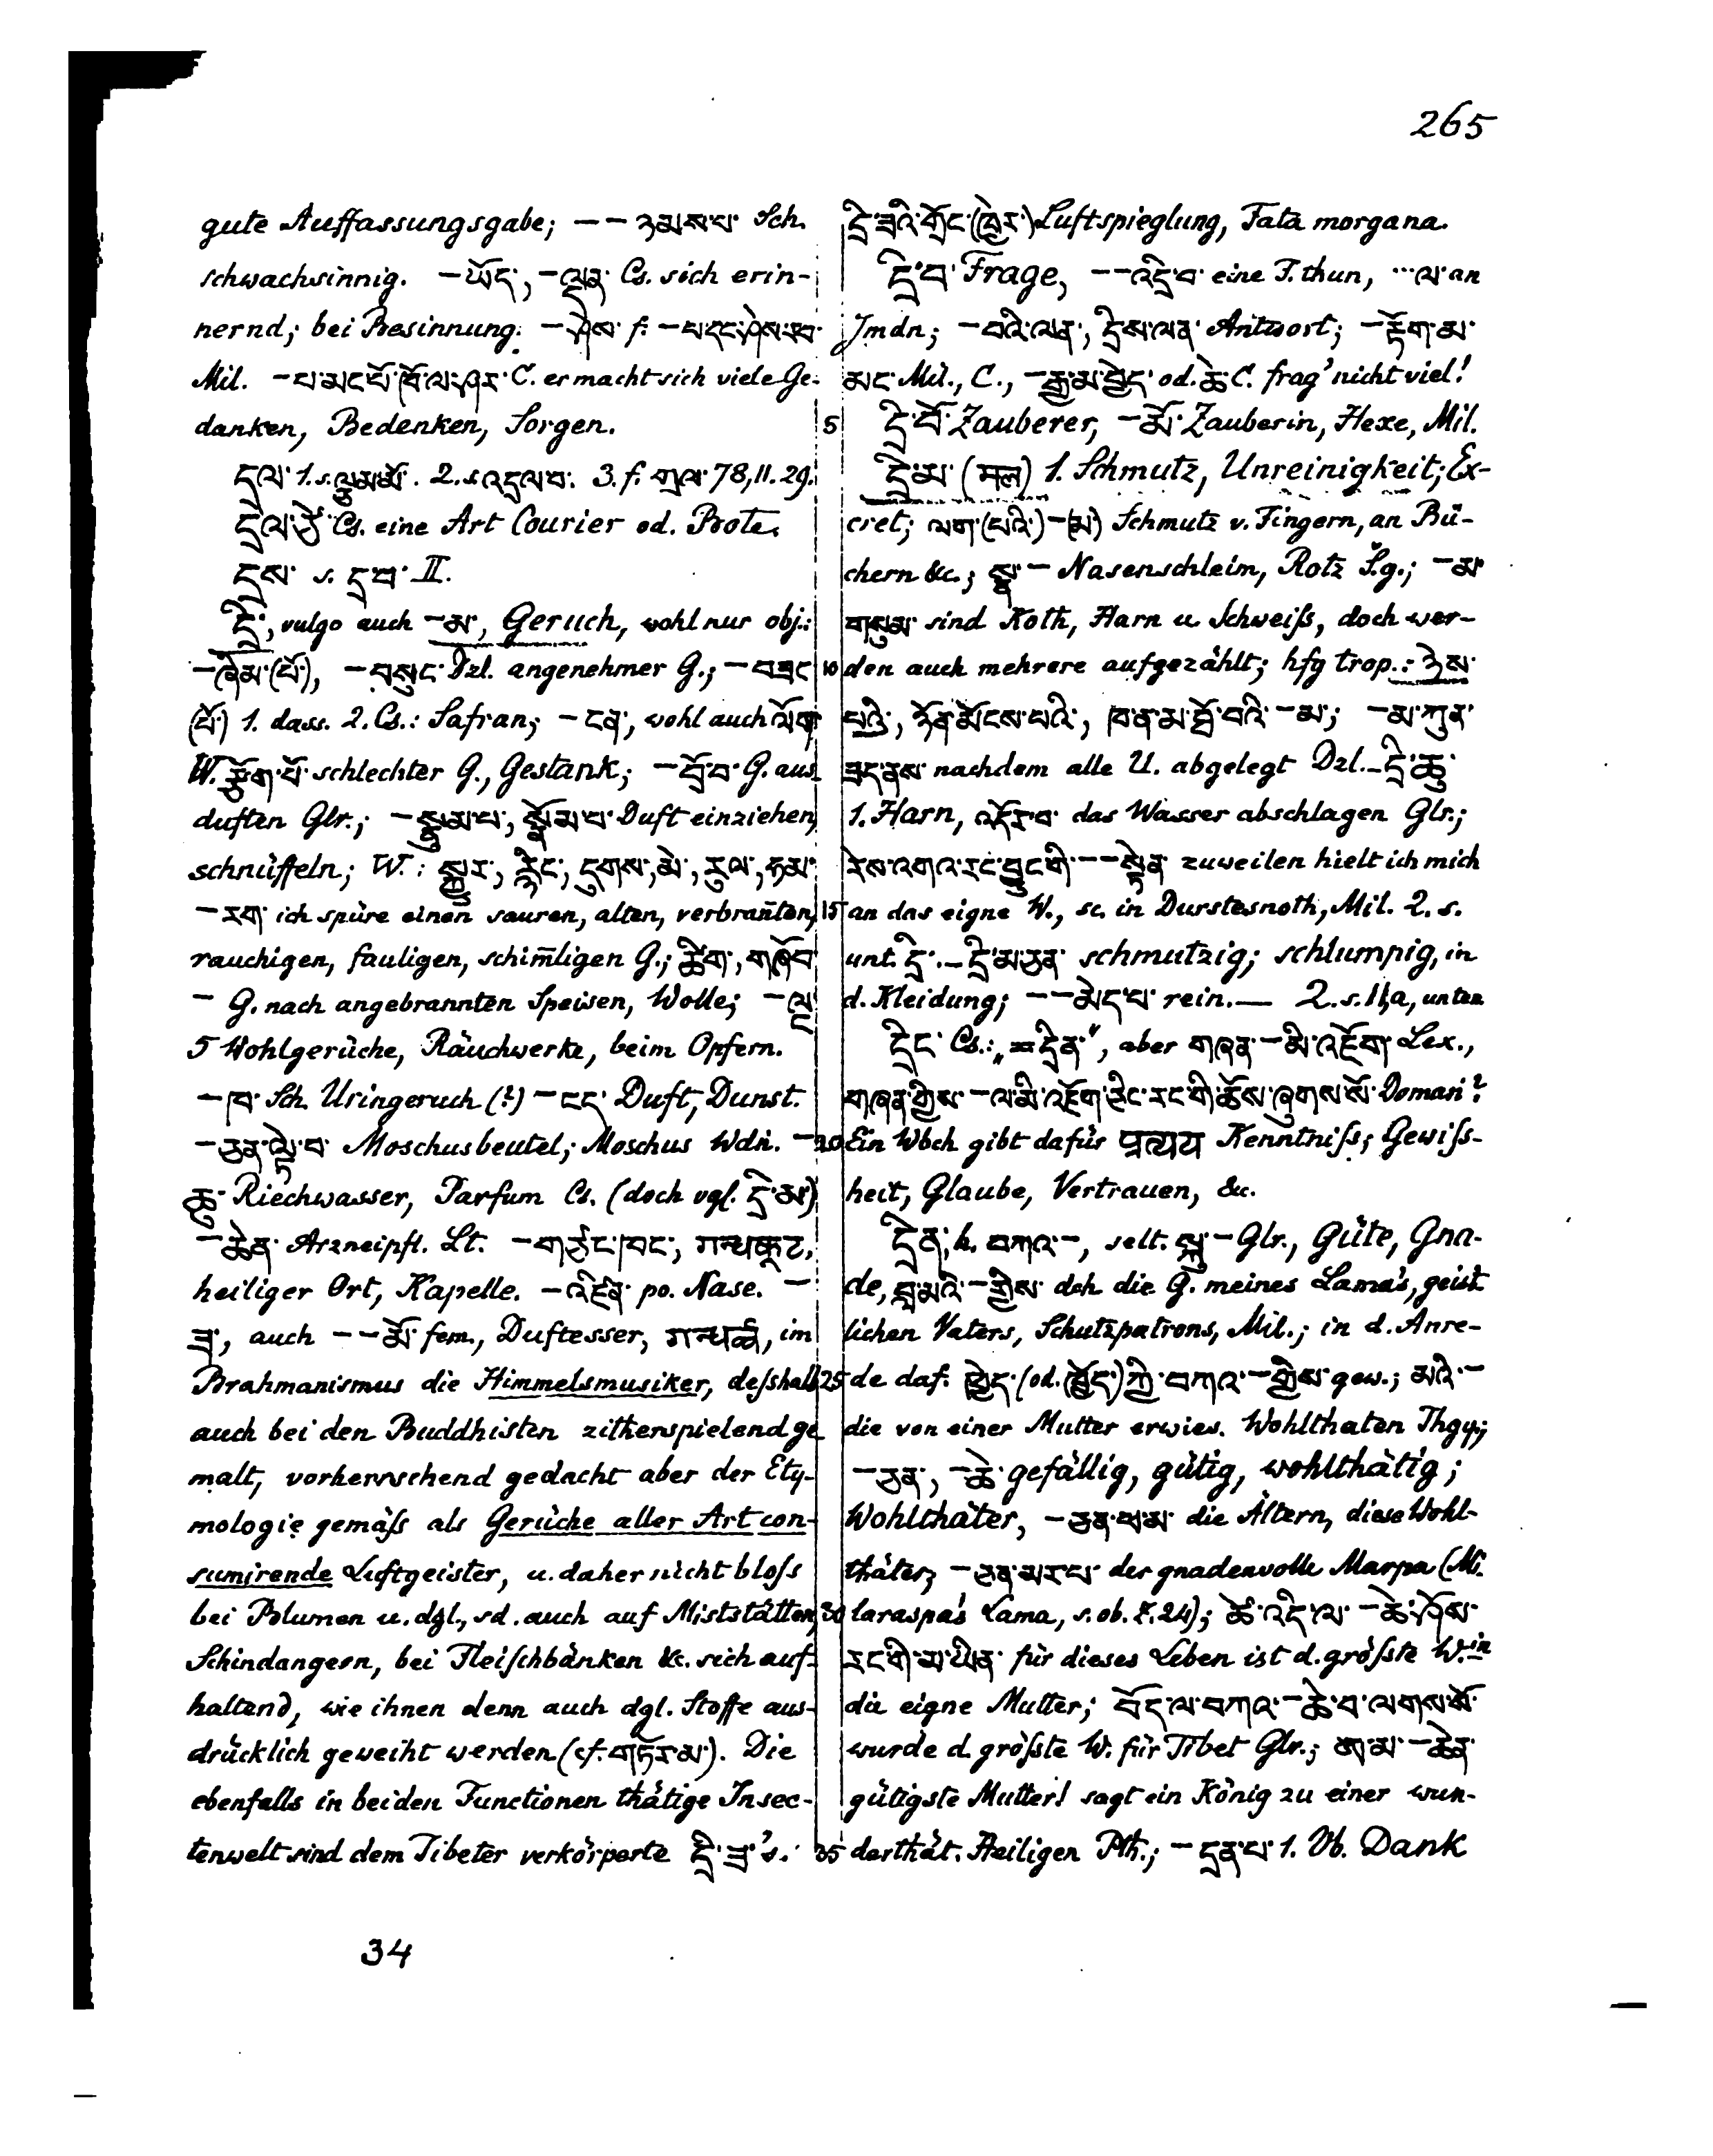 265
gute Auffassungsgabe; – – ཉམས་པ་ Sch.
schwachsinnig. – ཡོད་, – ལྡན་ Cs. sich erin-
nernd; bei Besinnung. – ཤེས་ f. – པ་དང་ཤེས་རབ་
Mil. – པ་མང་པོ་ཁོ་ལ་ཤར་ C. er macht sich viele Ge-
danken, Bedenken, Sorgen.
དྲལ་ 1. s. ལྕམ་མོ་. 2. s. འདྲལ་བ་. 3. f. གྲལ་ 78, II. 29.
དྲེལ་ཙེ་ Cs. eine Art Courier od. Bote.
དྲས་ s. དྲ་བ་ II.
དྲི་, vulgo auch – མ་, Geruch, wohl nur obj.:
– ཞིམ་(པོ་), – བསུང་ Dzl. angenehmer G.; – བཟང་
(པོ་) 1. dass. 2. Cs.: Safran; – ངན་, wohl auch ལོག་
W. རྩོག་པོ་ schlechter G., Gestank; – བྲོ་བ་ G. aus-
duften Glr.; – སྣུམ་པ་, སྣོམ་པ་ Duft einziehen,
schnüffeln; W.: སྐྱུར་, རྙིང་, དུགས་, མེ་, རུལ་, ཧམ་
– རག་ ich spüre einen sauren, alten, verbrañten,
rauchigen, fauligen, schim̄ligen G.; ཚིག་, གཞོབ་
– G. nach angebrannten Speisen, Wolle; – ལྔ་
5 Wohlgerüche, Räucherwerke, beim Opfern.
– ཁ་ Sch. Uringeruch (?) – ངད་ Duft, Dunst.
– ཅན་ལྟེ་བ་ Moschusbeutel; Moschus Wdn. –
ཆུ་ Riechwasser, Parfum Cs. (doch vgl. དྲི་མ་)
– ཆེན་ Arzneipfl. Lt. – གཙང་ཁང་, गन्धकूट,
heiliger Ort, Kapelle. – འཛིན་ po. Nase. –
ཟ་, auch – – མོ་ fem., Duftesser, गन्धर्व, im
Brahmanismus die Himmelsmusiker, deſshalb
auch bei den Buddhisten zitherspielend ge-
malt, vorherrschend gedacht aber der Ety-
mologie gemäſs als Gerüche aller Art con-
sumirende Luftgeister, u. daher nicht bloſs
bei Blumen u. dgl., sd. auch auf Miststätten,
Schindangern, bei Fleiſchbänken &c. sich auf-
haltend, wie ihnen denn auch dgl. Stoffe aus-
drücklich geweiht werden (cf. གཏོར་མ་). Die
ebenfalls in beiden Functionen thätige Insec-
tenwelt sind dem Tibeter verkörperte དྲི་ཟ་'s.
34
དྲི་ཟའི་གྲོང་(ཁྱེར་) Luftspieglung, Fata morgana.
དྲི་བ་ Frage, – – འདྲི་བ་ eine F. thun, …ལ་ an
Jmdn; – བའི་ལན་, དྲིས་ལན་ Antwort; – རྟོག་མ་
མང་ Mil., C., – རྒྱ་མ་བྱེད་ od. ཆེ་ C. frag' nicht viel!
5 དྲི་པོ་ Zauberer, – མོ་ Zauberin, Hexe, Mil.
དྲི་མ་ (मल) 1. Schmutz, Unreinigkeit; Ex-
cret; ལག་(པའི་) – (མ་) Schmutz v. Fingern, an Bü-
chern &c.; སྣ་ – Nasenschleim, Rotz S̆.g.; – མ་
གསུམ་ sind Koth, Harn u. Schweiſs, doch wer-
10 den auch mehrere aufgezählt; hfg trop.: ཉེས་
པའི་, ཉོན་མོངས་པའི་, ཁ་ན་མ་ཐོ་བའི་ – མ་; – མ་ཀུན་
ཟད་ནས་ nachdem alle U. abgelegt Dzl. – དྲི་ཆུ་
1. Harn, འདོར་བ་ das Wasser abschlagen Glr.;
རེས་འགའ་རང་བྱུང་གི་ – – སྟེན་ zuweilen hielt ich mich
15 an das eigne W., sc. in Durstesnoth, Mil. 2. s.
unt. དྲི་. – དྲི་མ་ཅན་ schmutzig; schlumpig, in
d. Kleidung; – – མེད་པ་ rein. — 2. s. II, a, unten
དྲིང་ Cs.: „= དྲིན་“, aber གཞན་ – མི་འཇོག་ Lex.,
གཞན་གྱིས་ – ལ་མི་འཇོག་ཅིང་རང་གི་ཆོས་ཞུགས་སོ་ Doman?
20 Ein Wbch gibt dafür प्रत्यय Kenntniſs; Gewiſs-
heit, Glaube, Vertrauen, &c.
དྲིན་, h. བཀའ་ –, selt. སྐུ་ – Glr., Güte, Gna-
de, བླ་མའི་ – གྱིས་ dch die G. meines Lama's, geist-
lichen Vaters, Schutzpatrons, Mil.; in d. Anre-
25 de daf. ཁྱེད་ (od. ཁྱོད་) ཀྱི་བཀའ་ – གྱིས་ gew.; མའི་ –
die von einer Mutter erwies. Wohlthaten Thgy.;
– ཅན་, – ཆེ་ gefällig, gütig, wohlthätig;
Wohlthäter, – ཅན་ཕ་མ་ die Ältern, diese Wohl-
thäter; – ཅན་མར་པ་ der gnadenvolle Marpa (Mi-
30 laraspa's Lama, s. ob. Z. 24); ཚེ་འདི་ལ་ – ཆེ་ཤོས་
རང་གི་མ་ཡིན་ für dieses Leben ist d. gröſste W.in
die eigne Mutter; བོད་ལ་བཀའ་ – ཆེ་བ་ལགས་སོ་
wurde d. gröſste W. für Tibet Glr.; མ་ – ཆེན་
gütigste Mutter! sagt ein König zu einer wun-
35 derthät. Heiligen Pth.; – དྲན་པ་ 1. Vb. Dank